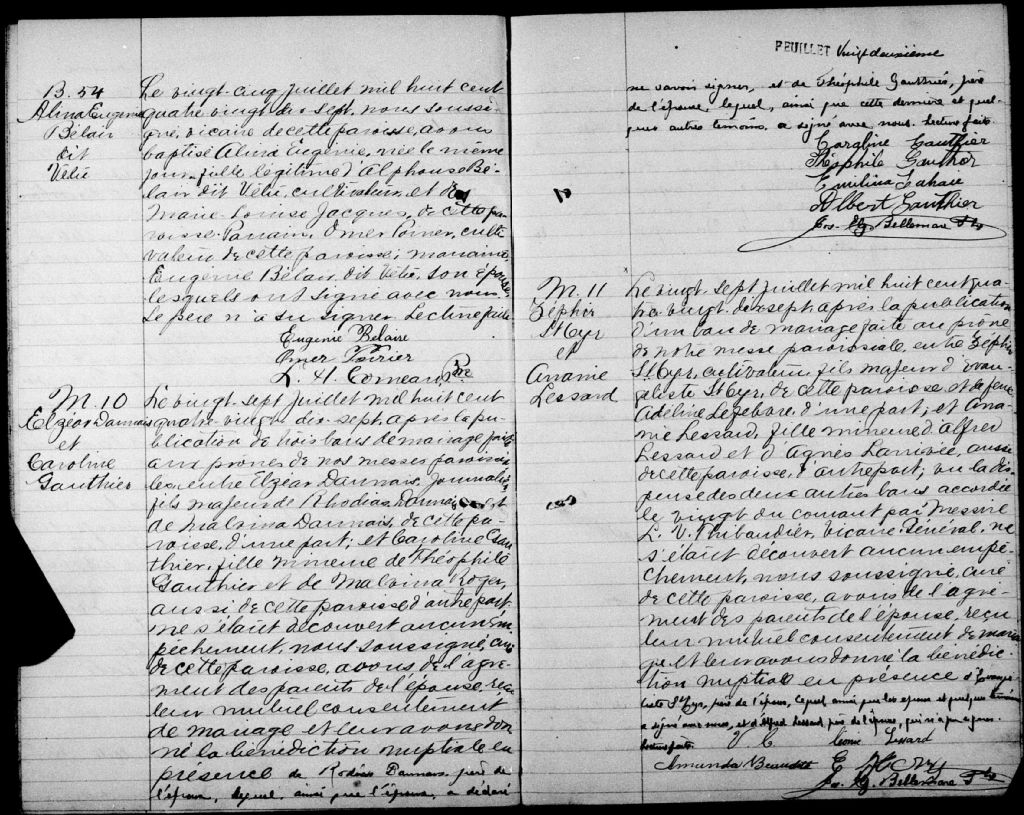 B. 54
Alina Eugénie
Bélair
dit
Vélié
Le vingt-cinq juillet mil huit cent
quatre vingt dix sept, nous soussi-
gné, vicaire de cette paroisse, avons
baptisé Alina Eugénie, née le même
jour, fille légitime d'Alphonse Bé-
lair dit Vélié, cultivateur, et de
Marie Louise Jacques, de cette pa-
roisse. Parrain, Omer Poirier, culti-
vateur de cette paroisse; marraine,
Eugénie Bélair dit Vélié, son épouse,
lesquels ont signé avec nous.
Le père n'a su signer. Lecture faite
Eugénie Bélaire
Omer Poirier
L. H. Comeau, Ptre
M. 10
Elzéar Daunais
et
Caroline
Gauthier
Le vingt-sept juillet mil huit cent
quatre vingt dix-sept, après la pu-
blication de trois bans de mariage faite
aux prônes de nos messes paroissia-
les entre Elzéar Daunais, journalier,
fils majeur de Rhodias Daunais, et
de Malvina Daunais, de cette pa-
roisse, d'une part; et Caroline Gau-
thier, fille mineure de Théophile
Gauthier et de Malvina Roger,
aussi de cette paroisse, d'autre part,
ne s'étant découvert aucun em-
pêchement, nous soussigné, curé
de cette paroisse, avons de l'agré-
ment des parents de l'épouse, reçu
leur mutuel consentement
de mariage et leur avons don-
né la bénédiction nuptiale en
présence de Rodias Daunais, père de
l'époux, lequel, ainsi que l'époux, a déclaré
FEUILLET Vingt deuxième
ne savoir signer, et de Théophile Gauthier, père
de l'épouse, lequel, ainsi que cette dernière et quel-
ques autres témoins, a signé avec nous. Lecture faite.
Caroline Gauthier
Théophile Gauthier
Emilina Lahaie
Albert Gauthier
Jos. Elz. Bellemare Ptre
M. 11
Zéphir
St Cyr
et
Ananie
Lessard
Le vingt-sept juillet mil huit cent qua-
tre vingt dix-sept après la publication
d'un ban de mariage faite au prône
de notre messe paroissiale, entre Zéphir
St Cyr, cultivateur, fils majeur d'Evan-
géliste St Cyr, de cette paroisse et de feue
Adeline Lefebvre, d'une part; et Ana-
nie Lessard, fille mineure d'Alfred
Lessard et d'Agnès Lamirée, aussi
de cette paroisse, d'autre part; vu la dis-
pense des deux autres bans accordée
le vingt du courant par Messire
L. V. Thibaudier, Vicaire Général, ne
s'étant découvert aucun empê-
chement, nous soussigné, curé
de cette paroisse, avons de l'agré-
ment des parents de l'épouse, reçu
leur mutuel consentement de maria-
ge et leur avons donné la bénédic-
tion nuptiale en présence d'Evangé-
liste St Cyr, père de l'époux, lequel, ainsi que les époux et quelques témoins
a signé avec nous, et d'Alfred Lessard, père de l'épouse, qui n'a pu signer.
Lecture faite. Léonie Lessard
Amanda Beaudet
Jos. Elz. Bellemare Ptre